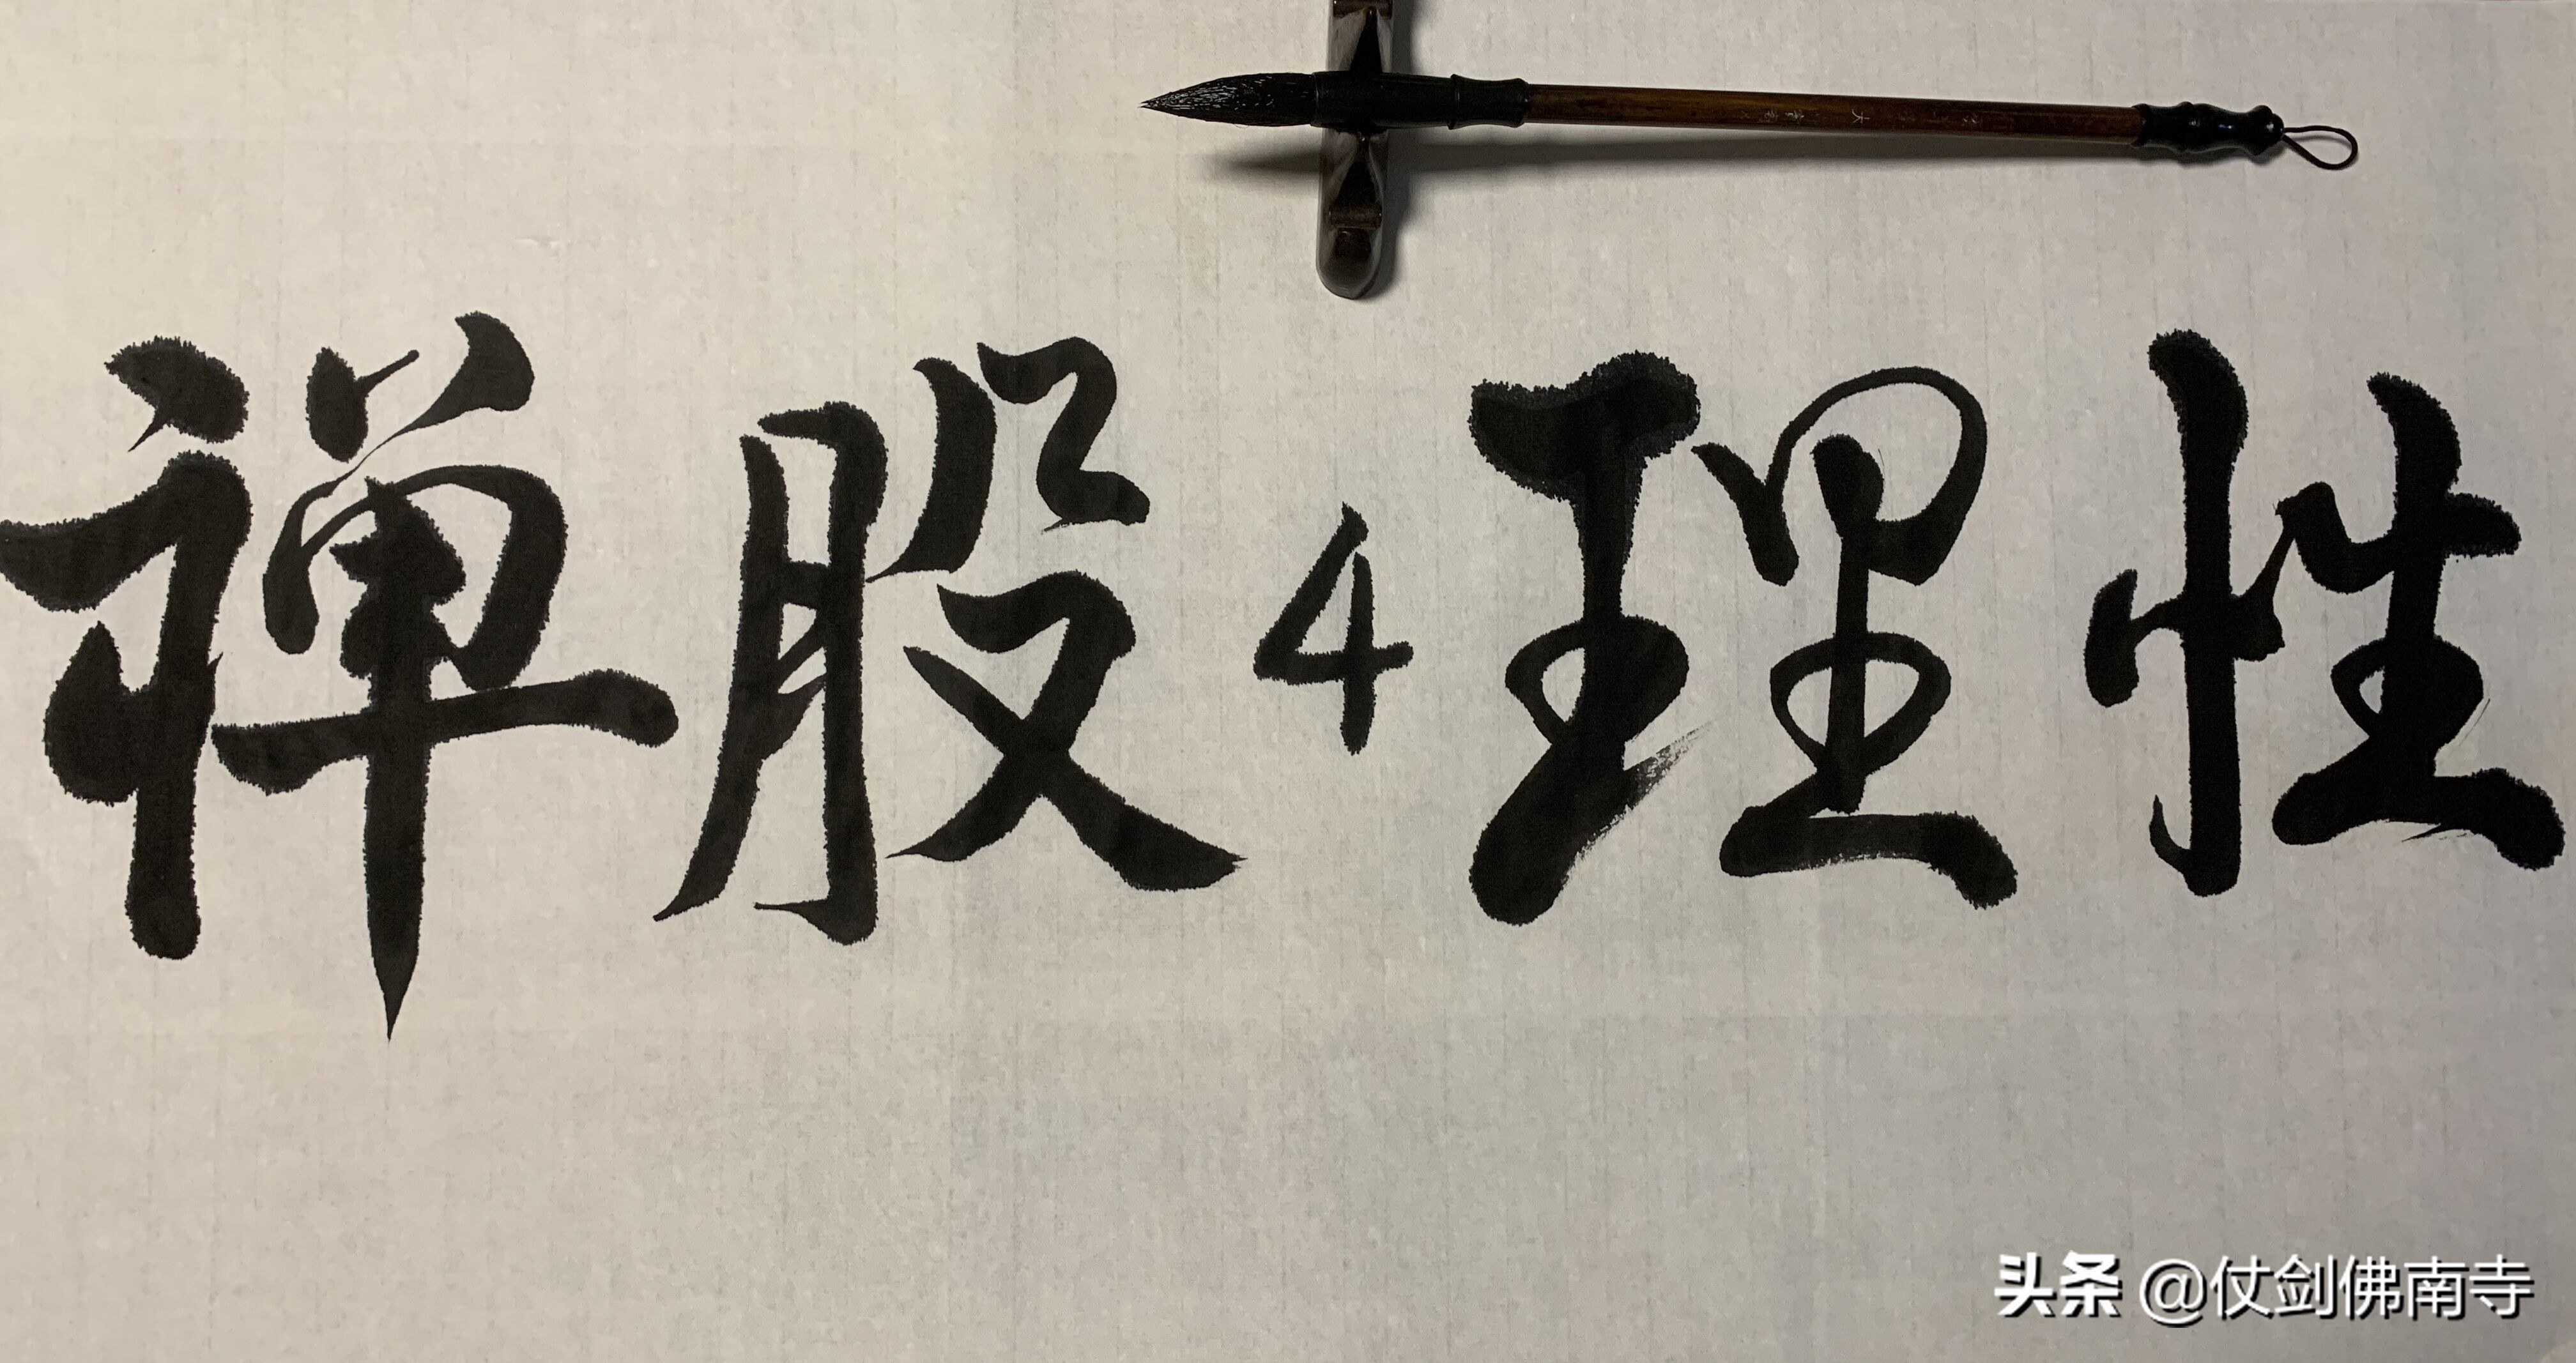 禅股4理性
头条 @仗剑佛南寺